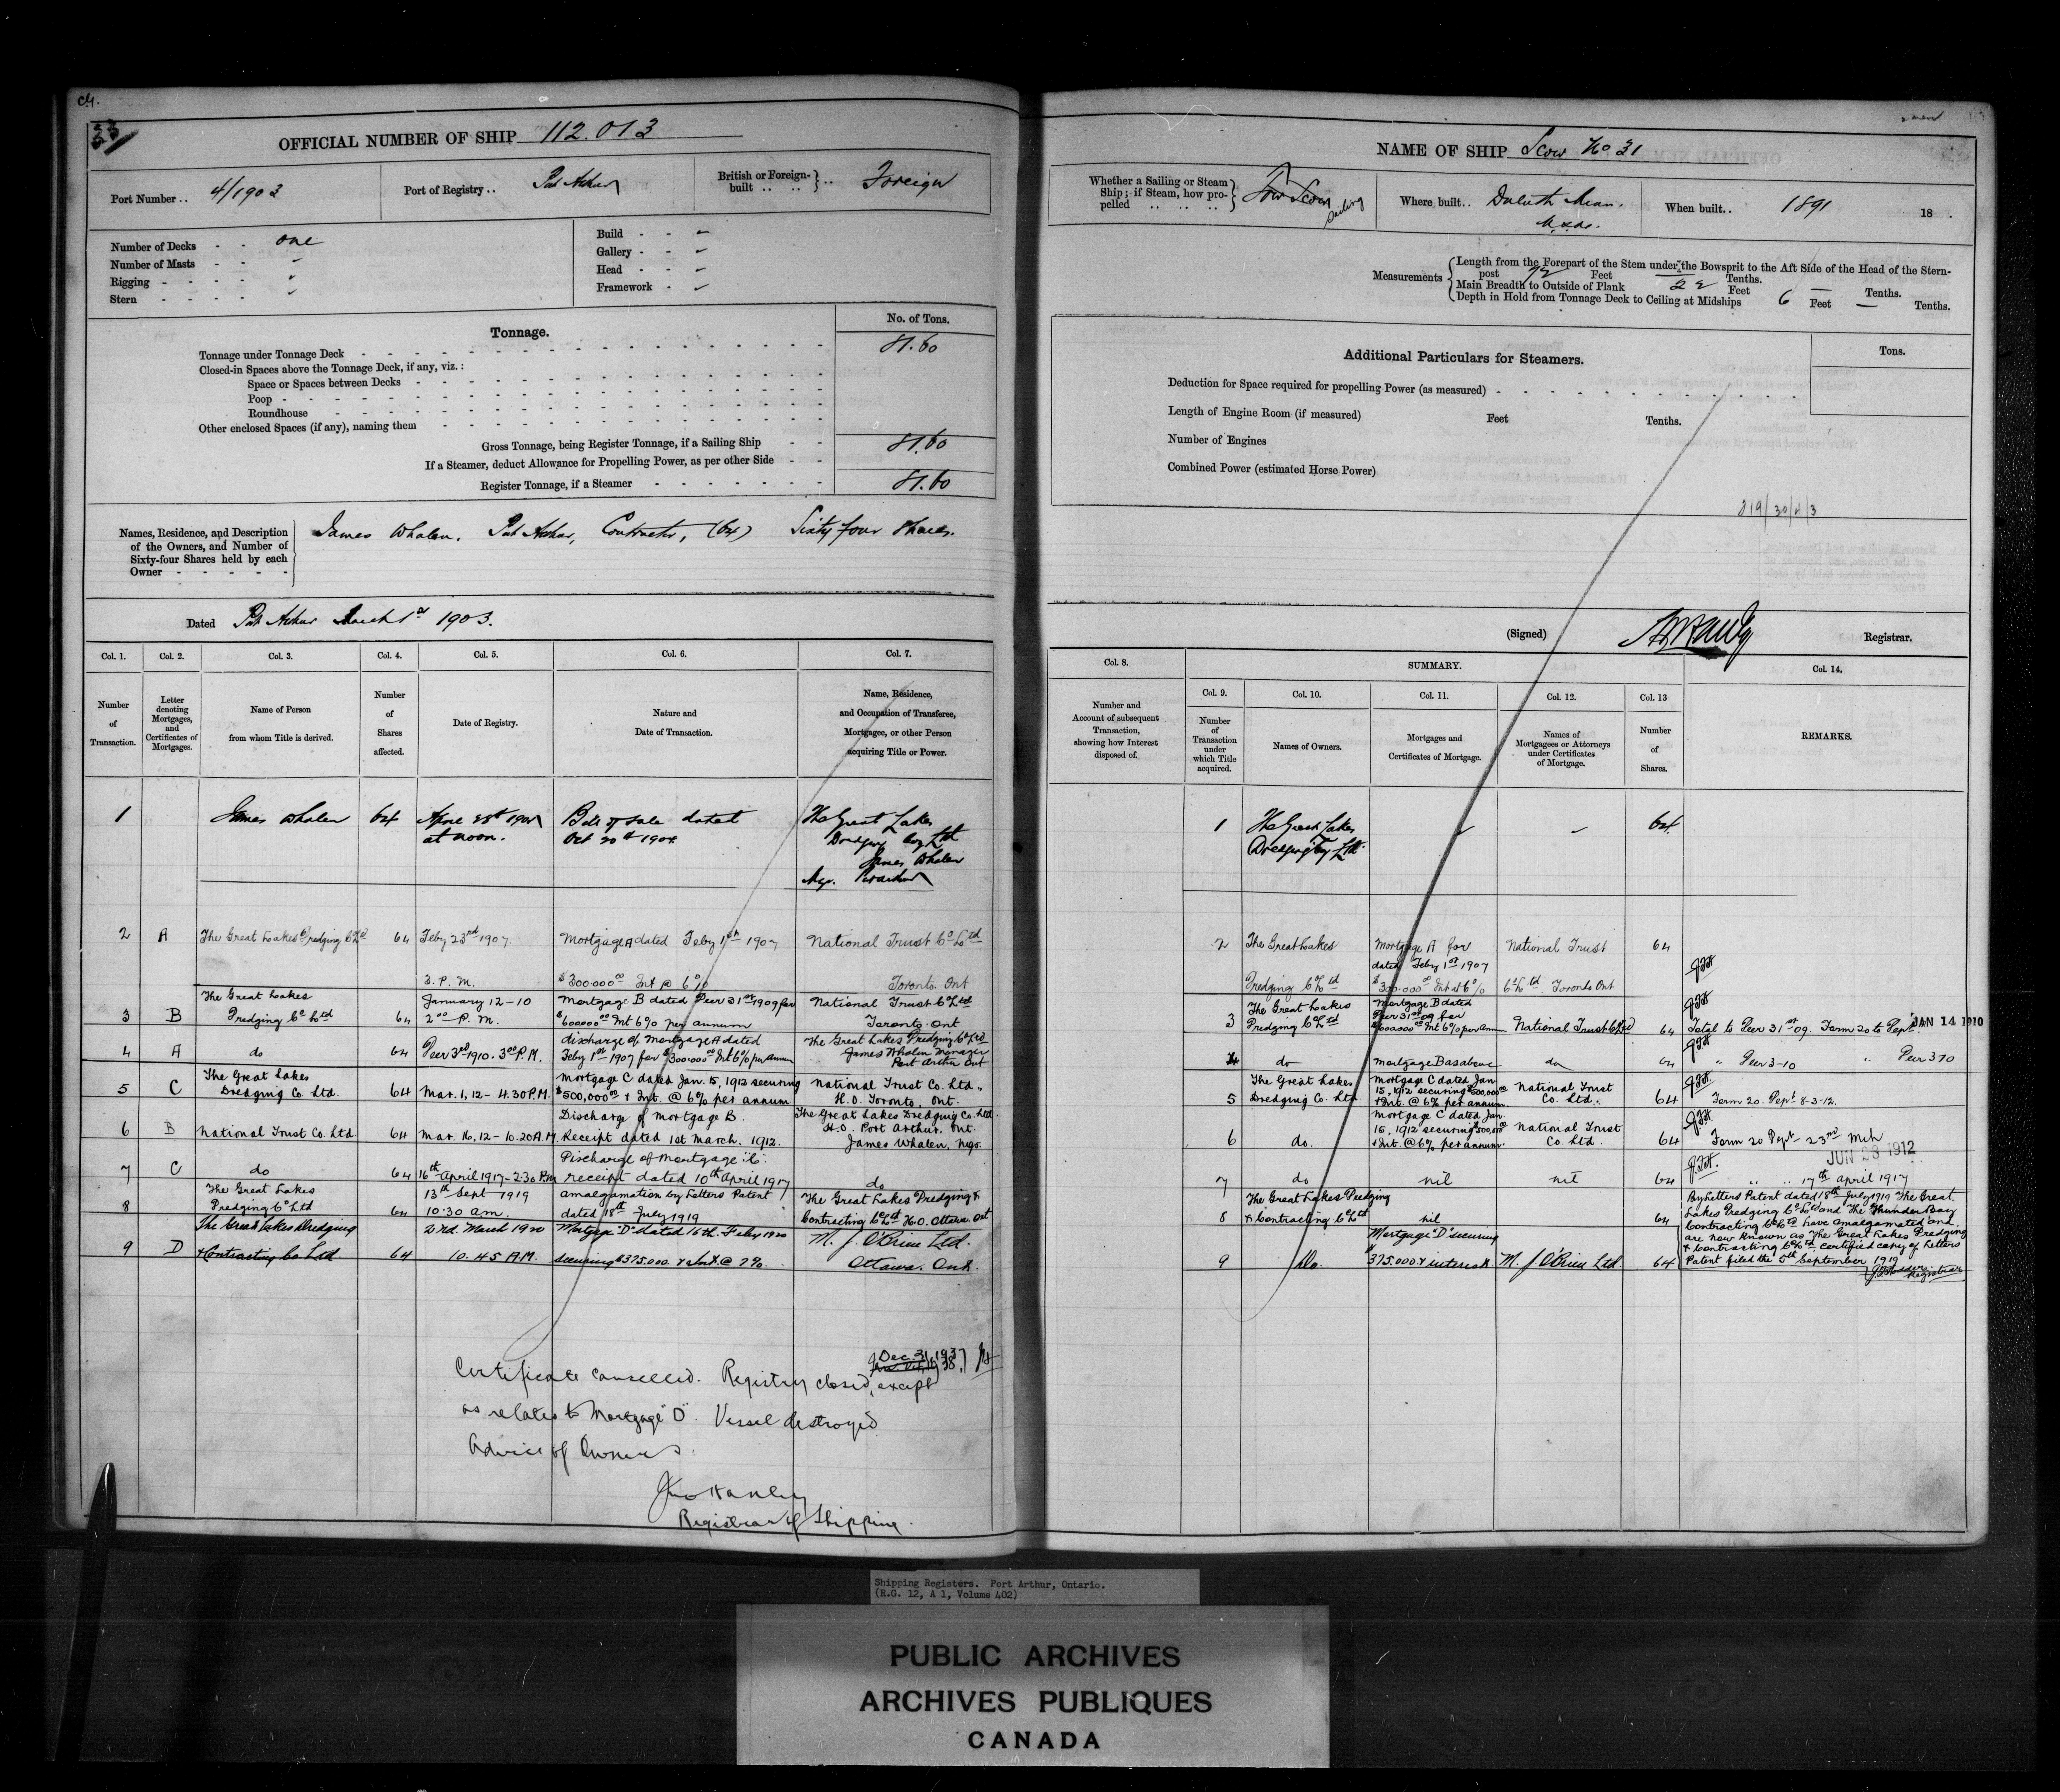 23
OFFICIAL NUMBER OF SHIP 112.013
Port Number .. 4/1903
Port of Registry .. Pt Arthur
British or Foreign-built .. Foreign
Number of Decks - - one
Number of Masts - -
Rigging - - - -
Stern - - - -
Build - -
Gallery - -
Head - -
Framework -
Tonnage.
No. of Tons.
Tonnage under Tonnage Deck 81.60
Closed-in Spaces above the Tonnage Deck, if any, viz.:
Space or Spaces between Decks
Poop
Roundhouse
Other enclosed Spaces (if any), naming them
Gross Tonnage, being Register Tonnage, if a Sailing Ship 81.60
If a Steamer, deduct Allowance for Propelling Power, as per other Side
Register Tonnage, if a Steamer 81.60
Names, Residence, and Description
of the Owners, and Number of
Sixty-four Shares held by each
Owner
James Whalen, Pt Arthur, Contractor, (64) Sixty four shares.
Dated Pt Arthur March 1st 1903.
Col. 1. Col. 2. Col. 3. Col. 4. Col. 5. Col. 6. Col. 7.
Number of Transaction.
Letter denoting Mortgages, and Certificates of Mortgages.
Name of Person from whom Title is derived.
Number of Shares affected.
Date of Registry.
Nature and Date of Transaction.
Name, Residence, and Occupation of Transferee, Mortgagee, or other Person acquiring Title or Power.
1 James Whalen 64 April 25th at noon. Bill of sale dated Oct 20th 1904 The Great Lakes Dredging Coy Ltd James Whalen Mgr. Pt Arthur
2 A The Great Lakes Dredging Co Ltd 64 Feby 23rd 1907. 3. P.M. Mortgage A dated Feby 1st 1907 $300.000 00 Int @ 6% National Trust Co Ltd Toronto Ont
3 B The Great Lakes Dredging Co Ltd 64 January 12-10 2 00 P.M. Mortgage B dated Decr 31st 1909 for $600000 00 Int 6% per annum National Trust Co Ltd Toronto Ont
4 A do 64 Decr 3rd 1910. 3 00 P.M. discharge of Mortgage A dated Feby 1st 1907 for $300.000 00 Int 6% per annum The Great Lakes Dredging Co Ltd James Whalen Manager Port Arthur Ont
5 C The Great Lakes Dredging Co. Ltd. 64 Mar. 1, 12 - 4.30 P.M. Mortgage C dated Jan. 15, 1912 securing $500,000 00 & Int. @ 6% per annum National Trust Co. Ltd., H.O. Toronto, Ont.
6 B National Trust Co. Ltd 64 Mar. 16, 12 - 10.20 A.M. Discharge of Mortgage B. Receipt dated 1st March, 1912. The Great Lakes Dredging Co. Ltd. H.O. Port Arthur, Ont. James Whalen, Mgr.
7 C do 64 16th April 1917 - 2.30 P.M. Discharge of Mortgage "C". receipt dated 10th April 1917 do
8 The Great Lakes Dredging Co Ltd 64 13th Sept 1919 10.30 am. amalgamation by Letters Patent dated 18th July 1919 The Great Lakes Dredging & Contracting Co Ltd H.O. Ottawa Ont
9 D The Great Lakes Dredging & Contracting Co Ltd 64 2rd. March 1920 10.45 A.M. Mortgage "D" dated 16th Feby 1920 securing $375.000. & Int. @ 7%. M. J. O'Brien Ltd. Ottawa. Ont.
Dec. 31, 1937
Certificate cancelled. Registry closed, except
as relates to Mortgage "D". Vessel destroyed
Advice of Owners.
Registrar of Shipping.
NAME OF SHIP Scow No 31
Whether a Sailing or Steam Ship; if Steam, how propelled Tow Scow Sailing
Where built .. Duluth Minn. U.S.A.
When built .. 1891 18 .
Measurements
Length from the Forepart of the Stem under the Bowsprit to the Aft Side of the Head of the Stern-
post 72 Feet — Tenths.
Main Breadth to Outside of Plank 22 Feet — Tenths.
Depth in Hold from Tonnage Deck to Ceiling at Midships 6 Feet — Tenths.
Additional Particulars for Steamers.
Tons.
Deduction for Space required for propelling Power (as measured)
Length of Engine Room (if measured) Feet Tenths.
Number of Engines
Combined Power (estimated Horse Power)
(Signed) Registrar.
Col. 8. SUMMARY. Col. 14.
Col. 9. Col. 10. Col. 11. Col. 12. Col. 13
Number and Account of subsequent Transaction, showing how Interest disposed of.
Number of Transaction under which Title acquired.
Names of Owners.
Mortgages and Certificates of Mortgage.
Names of Mortgagees or Attorneys under Certificates of Mortgage.
Number of Shares.
REMARKS.
1 The Great Lakes Dredging Coy Ltd 64
2 The Great Lakes Dredging Co Ltd Mortgage A for dated Feby 1st 1907 $300.000 00 Int at 6% National Trust Co Ltd Toronto Ont 64
3 The Great Lakes Dredging Co Ltd Mortgage B dated Decr 31st 09 for $600.000 00 Int 6% per annum National Trust Co Ltd 64 Total to Decr 31st 09. Form 20 to Dept. JAN 14 1910
4 do Mortgage B as above do 64 " Decr 3-10 " Decr 3 10
5 The Great Lakes Dredging Co. Ltd. Mortgage C dated Jan. 15, 1912 securing $500,000 00 & Int. @ 6% per annum. National Trust Co. Ltd. 64 Form 20. Dept. 8-3-12.
6 do. Mortgage C dated Jan. 15, 1912 securing $500,000 & Int. @ 6% per annum. National Trust Co. Ltd. 64 Form 20 Dept - 23rd Mch JUN 28 1912
7 do nil nil 64 " " 17th April 1917
8 The Great Lakes Dredging & Contracting Co Ltd nil 64 By Letters Patent dated 18th July 1919 The Great
Lakes Dredging Co Ltd and The Thunder Bay
Contracting Co Ltd have amalgamated and
are now known as The Great Lakes Dredging
& Contracting Co Ltd certified copy of Letters
Patent filed the 5th September 1919
Registrar
9 Do. Mortgage "D" securing $375.000 & interest M. J. O'Brien Ltd. 64
Shipping Registers. Port Arthur, Ontario.
(R.G. 12, A 1, Volume 402)
PUBLIC ARCHIVES
ARCHIVES PUBLIQUES
CANADA